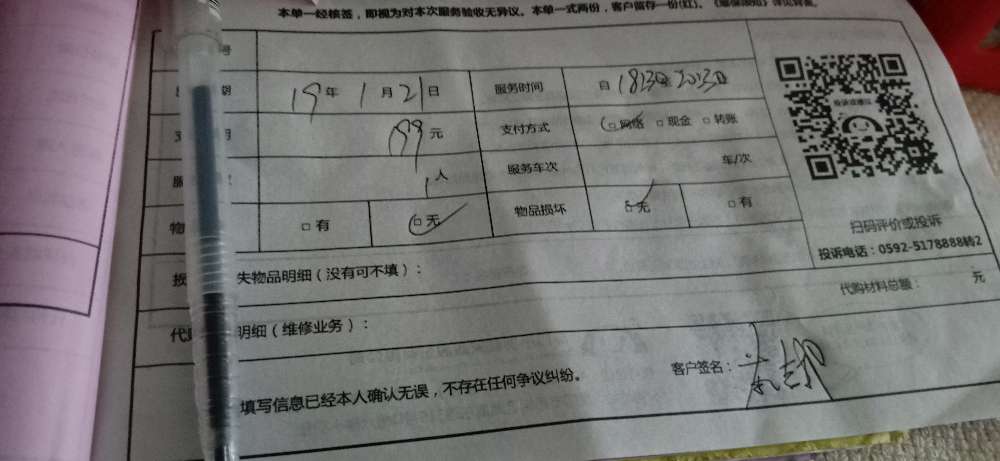 本单一经核签，即视为对本次服务验收无异议。本单一式两份，客户留存一份(红)。
号
期 19年 1月 21日 服务时间 自 1813 2013
199元 支付方式 □网络 □现金 □转账
1人 服务车次 车/次
物 □有 □无 物品损坏 □无 □有
投诉或建议
扫码评价或投诉
投诉电话：0592-5178888转2
失物品明细（没有可不填）：
代 明细（维修业务）： 代购材料总额： 元
填写信息已经本人确认无误，不存在任何争议纠纷。 客户签名：